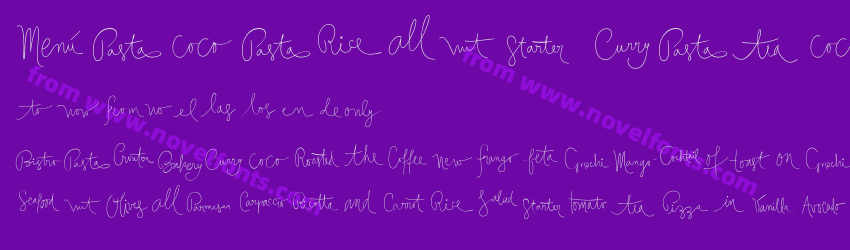 Menú Pasta coco Pasta Rice all nut Starter Curry Pasta tea coc
to now from no el las los en de only
Bistro Pasta Crouton Bakery Curry coco Roasted the Coffee new frango feta Gnocchi Mango Cocktail of toast on Gnocchi
Seafood nut Olives all Parmesan Carpaccio Ricotta and Carrot Rice Salad Starter tomato tea Pizza in Vanilla Avocado
from www.novelfonts.com
from www.novelfonts.com